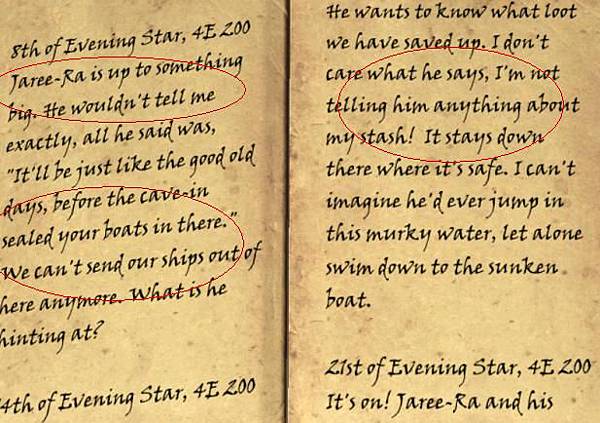 8th of Evening Star, 4E 200
Jaree-Ra is up to something
big. He wouldn't tell me
exactly, all he said was,
"It'll be just like the good old
days, before the cave-in
sealed your boats in there."
We can't send our ships out of
here anymore. What is he
hinting at?
4th of Evening Star, 4E 200
He wants to know what loot
we have saved up. I don't
care what he says, I'm not
telling him anything about
my stash! It stays down
there where it's safe. I can't
imagine he'd ever jump in
this murky water, let alone
swim down to the sunken
boat.
21st of Evening Star, 4E 200
It's on! Jaree-Ra and his